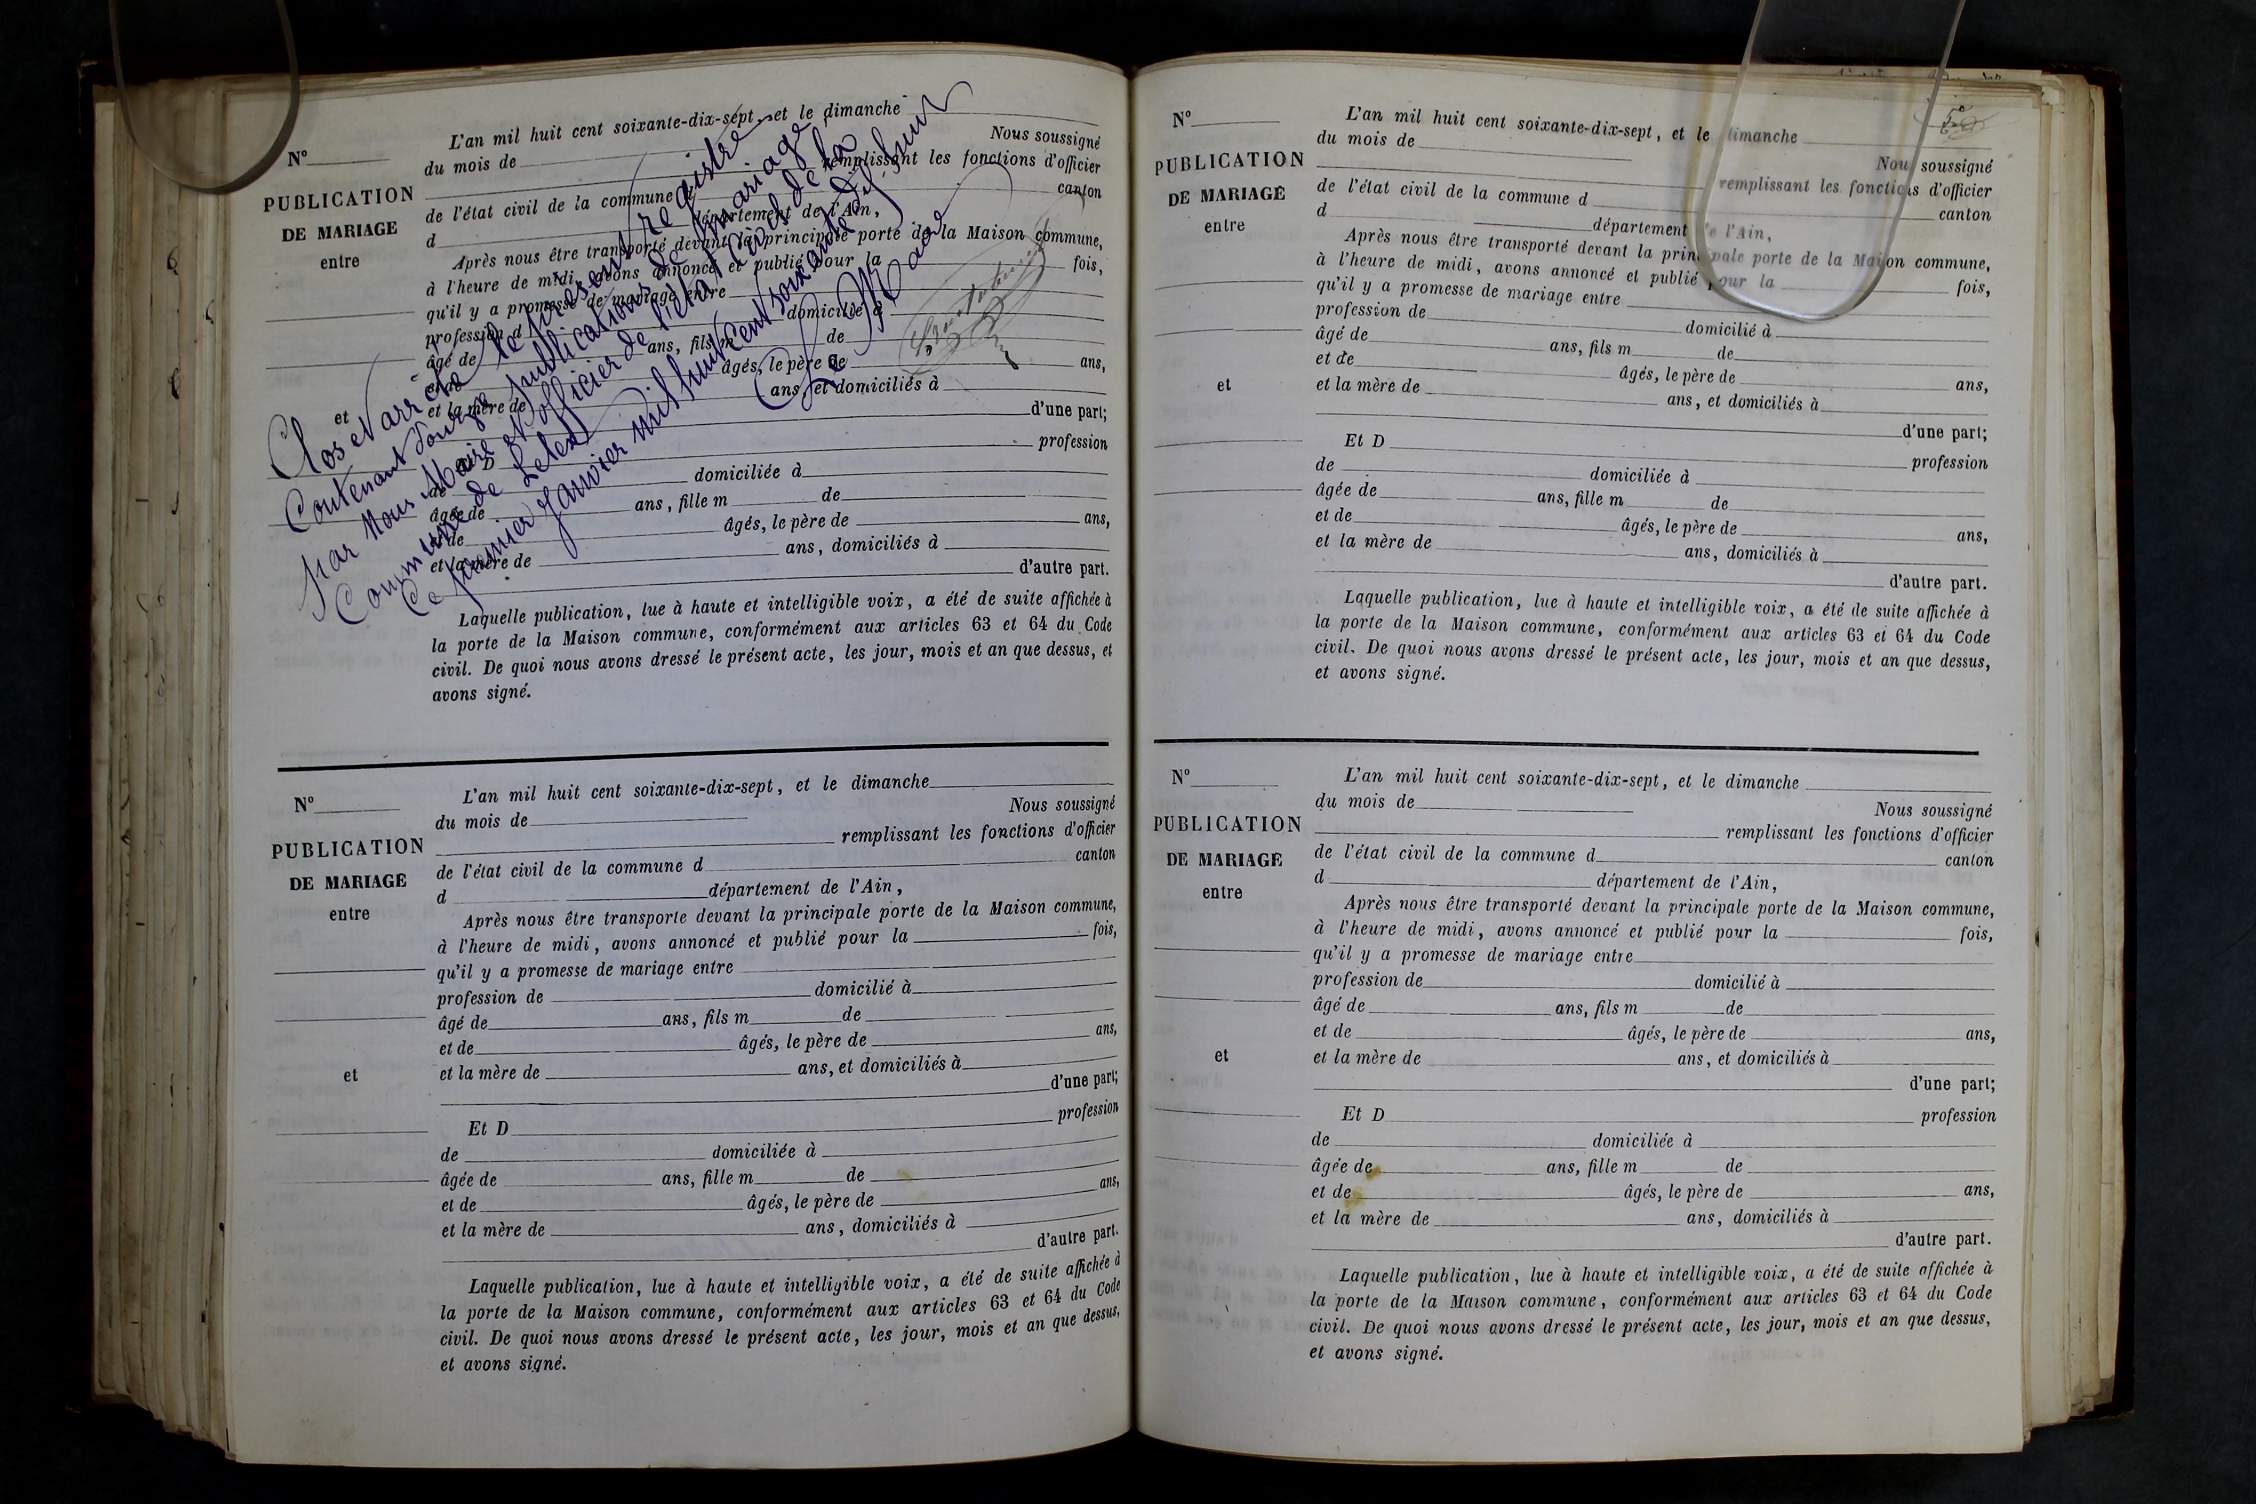 L'an mil huit cent soixante-dix-sept, et le dimanche
N°
du mois de
Nous soussigné
PUBLICATION
remplissant les fonctions d'officier
DE MARIAGE
de l'état civil de la commune d
canton
entre
d
département de l'Ain,
Après nous être transporté devant la principale porte de la Maison commune,
à l'heure de midi, avons annoncé et publié pour la
fois,
qu'il y a promesse de mariage entre
profession d
domicilié à
âgé de
ans, fils m
de
et de
âgés, le père de
ans,
et
et la mère de
ans, et domiciliés à
d'une part;
Et D
profession
de
domiciliée à
âgée de
ans, fille m
de
et de
âgés, le père de
ans,
et la mère de
ans, domiciliés à
d'autre part.
Laquelle publication, lue à haute et intelligible voix, a été de suite affichée à
la porte de la Maison commune, conformément aux articles 63 et 64 du Code
civil. De quoi nous avons dressé le présent acte, les jour, mois et an que dessus, et
avons signé.
Clos et arreté le présent registre
Contenant Douze publications de mariage
par Nous Maire et officier de l'état Civil de la
Commune de Lelex
Ce premier Janvier mil huit cent soixante dix huit
Le Maire
N°
L'an mil huit cent soixante-dix-sept, et le dimanche
du mois de
Nous soussigné
PUBLICATION
remplissant les fonctions d'officier
DE MARIAGE
de l'état civil de la commune d
canton
entre
d
département de l'Ain,
Après nous être transporté devant la principale porte de la Maison commune,
à l'heure de midi, avons annoncé et publié pour la
fois,
qu'il y a promesse de mariage entre
profession de
domicilié à
âgé de
ans, fils m
de
et de
âgés, le père de
ans,
et
et la mère de
ans, et domiciliés à
d'une part;
Et D
profession
de
domiciliée à
âgée de
ans, fille m
de
et de
âgés, le père de
ans,
et la mère de
ans, domiciliés à
d'autre part.
Laquelle publication, lue à haute et intelligible voix, a été de suite affichée à
la porte de la Maison commune, conformément aux articles 63 et 64 du Code
civil. De quoi nous avons dressé le présent acte, les jour, mois et an que dessus,
et avons signé.
N°
L'an mil huit cent soixante-dix-sept, et le dimanche
du mois de
Nous soussigné
PUBLICATION
remplissant les fonctions d'officier
DE MARIAGE
de l'état civil de la commune d
canton
entre
d
département de l'Ain,
Après nous être transporté devant la principale porte de la Maison commune,
à l'heure de midi, avons annoncé et publié pour la
fois,
qu'il y a promesse de mariage entre
profession de
domicilié à
âgé de
ans, fils m
de
et de
âgés, le père de
ans,
et
et la mère de
ans, et domiciliés à
d'une part;
Et D
profession
de
domiciliée à
âgée de
ans, fille m
de
et de
âgés, le père de
ans,
et la mère de
ans, domiciliés à
d'autre part.
Laquelle publication, lue à haute et intelligible voix, a été de suite affichée à
la porte de la Maison commune, conformément aux articles 63 et 64 du Code
civil. De quoi nous avons dressé le présent acte, les jour, mois et an que dessus,
et avons signé.
N°
L'an mil huit cent soixante-dix-sept, et le dimanche
du mois de
Nous soussigné
PUBLICATION
remplissant les fonctions d'officier
DE MARIAGE
de l'état civil de la commune d
canton
entre
d
département de l'Ain,
Après nous être transporté devant la principale porte de la Maison commune,
à l'heure de midi, avons annoncé et publié pour la
fois,
qu'il y a promesse de mariage entre
profession de
domicilié à
âgé de
ans, fils m
de
et de
âgés, le père de
ans,
et
et la mère de
ans, et domiciliés à
d'une part;
Et D
profession
de
domiciliée à
âgée de
ans, fille m
de
et de
âgés, le père de
ans,
et la mère de
ans, domiciliés à
d'autre part.
Laquelle publication, lue à haute et intelligible voix, a été de suite affichée à
la porte de la Maison commune, conformément aux articles 63 et 64 du Code
civil. De quoi nous avons dressé le présent acte, les jour, mois et an que dessus,
et avons signé.